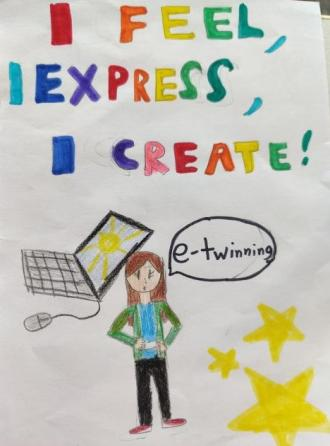 I FEEL,
I EXPRESS,
I CREATE!
e-twinning